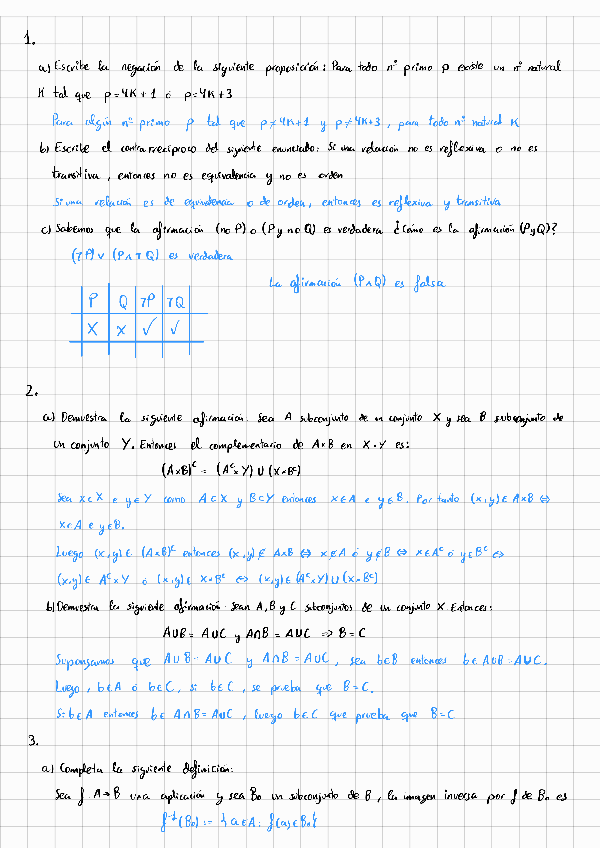 1.
a) Escribe la negación de la siguiente proposición: Para todo nº primo p existe un nº natural
K tal que p=4K+1 ó p=4K+3
Para algún nº primo p tal que p≠4K+1 y p≠4K+3, para todo nº natural K
b) Escribe el contrarrecíproco del siguiente enunciado: Si una relación no es reflexiva o no es
transitiva, entonces no es equivalencia y no es orden
Si una relación es de equivalencia o de orden, entonces es reflexiva y transitiva
c) Sabemos que la afirmación (no P) o (P y no Q) es verdadera ¿Cómo es la afirmación (P y Q)?
(¬P) ∨ (P∧¬Q) es verdadera
La afirmación (P∧Q) es falsa
P Q ¬P ¬Q
X X ✓ ✓
2.
a) Demuestra la siguiente afirmación. Sea A subconjunto de un conjunto X y sea B subconjunto de
un conjunto Y. Entonces el complementario de A×B en X×Y es:
(A×B)ᶜ = (Aᶜ×Y) ∪ (X×Bᶜ)
Sea x∈X e y∈Y como A⊂X y B⊂Y entonces x∈A e y∈B. Por tanto (x,y)∈A×B ⇔
x∈A e y∈B.
Luego (x,y)∈ (A×B)ᶜ entonces (x,y)∉ A×B ⇔ x∉A ó y∉B ⇔ x∈Aᶜ ó y∈Bᶜ ⇔
(x,y)∈ Aᶜ×Y ó (x,y)∈ X×Bᶜ ⇔ (x,y)∈ (Aᶜ×Y)∪(X×Bᶜ)
b) Demuestra la siguiente afirmación. Sean A,B y C subconjuntos de un conjunto X. Entonces:
A∪B = A∪C y A∩B = A∪C => B=C
Supongamos que A∪B=A∪C y A∩B=A∪C, sea b∈B entonces b∈A∪B=A∪C.
Luego, b∈A ó b∈C, si b∈C, se prueba que B=C.
Si b∈A entonces b∈ A∩B=A∪C, luego b∈C que prueba que B=C
3.
a) Completa la siguiente definición:
Sea f: A→B una aplicación y sea B₀ un subconjunto de B, la imagen inversa por f de B₀ es
f⁻¹(B₀) := {a∈A: f(a)∈B₀}